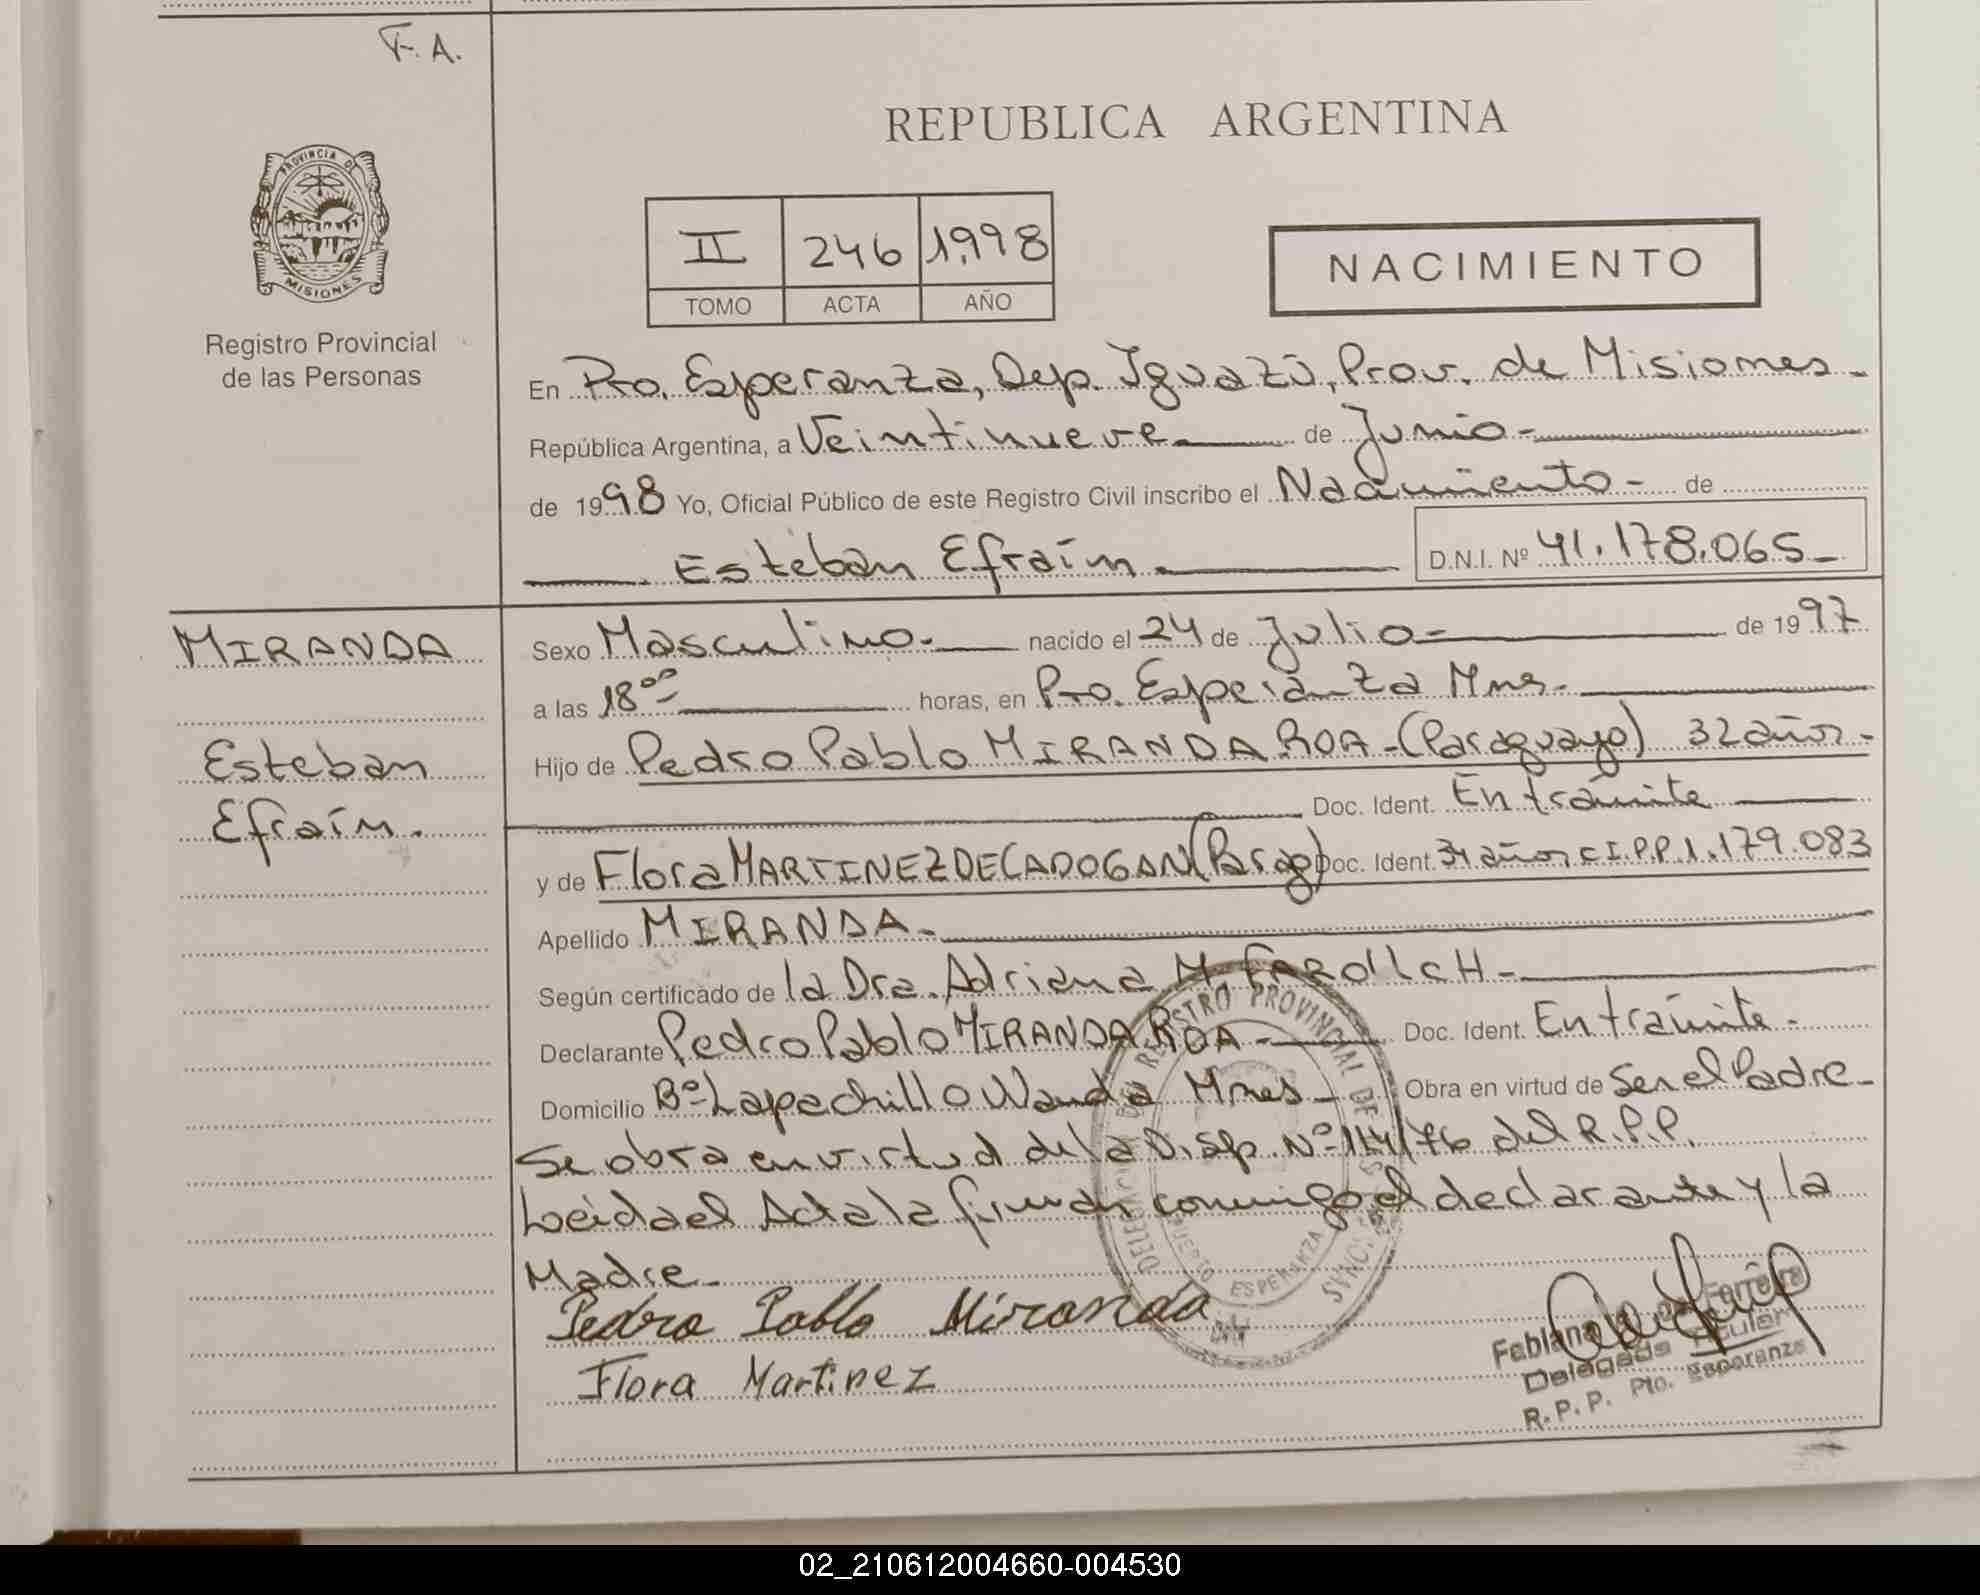 F. A.
PROVINCIA DE
MISIONES
Registro Provincial
de las Personas
REPUBLICA ARGENTINA
II 246 1.998
TOMO ACTA AÑO
NACIMIENTO
En Pto. Esperanza, Dep. Iguazú, Prov. de Misiones -
República Argentina, a Veintinueve de Junio -
de 1998 Yo, Oficial Público de este Registro Civil inscribo el Nacimiento - de
Esteban Efraín. D.N.I. Nº 41.178.065 -
MIRANDA
Esteban
Efraín.
Sexo Masculino - nacido el 24 de Julio - de 1997
a las 18 00 horas, en Pto. Esperanza Mnes.
Hijo de Pedro Pablo MIRANDA ROA - (Paraguayo) 32 años -
Doc. Ident. En trámite
y de Flora MARTINEZ DE CADOGAN (Parag) Doc. Ident. 34 años C I.P.P. 1.179.083
Apellido MIRANDA -
Según certificado de la Dra. Adriana M.
Declarante Pedro Pablo MIRANDA ROA - Doc. Ident. En trámite -
Domicilio Bº Lapachillo Wanda Mnes - Obra en virtud de Ser el Padre -
Se obra en virtud de la Disp. Nº 114/76 del R.P.P.
Leída el Acta la firman conmigo el declarante y la
Madre -
Pedro Pablo Miranda
Flora Martinez
DELEGACION DEL REGISTRO PROVINCIAL DE LAS PERSONAS
PUERTO ESPERANZA
MISIONES
Fabiana de Ferreira
Delegada Titular
R. P. P. Pto. Esperanza
02_210612004660-004530